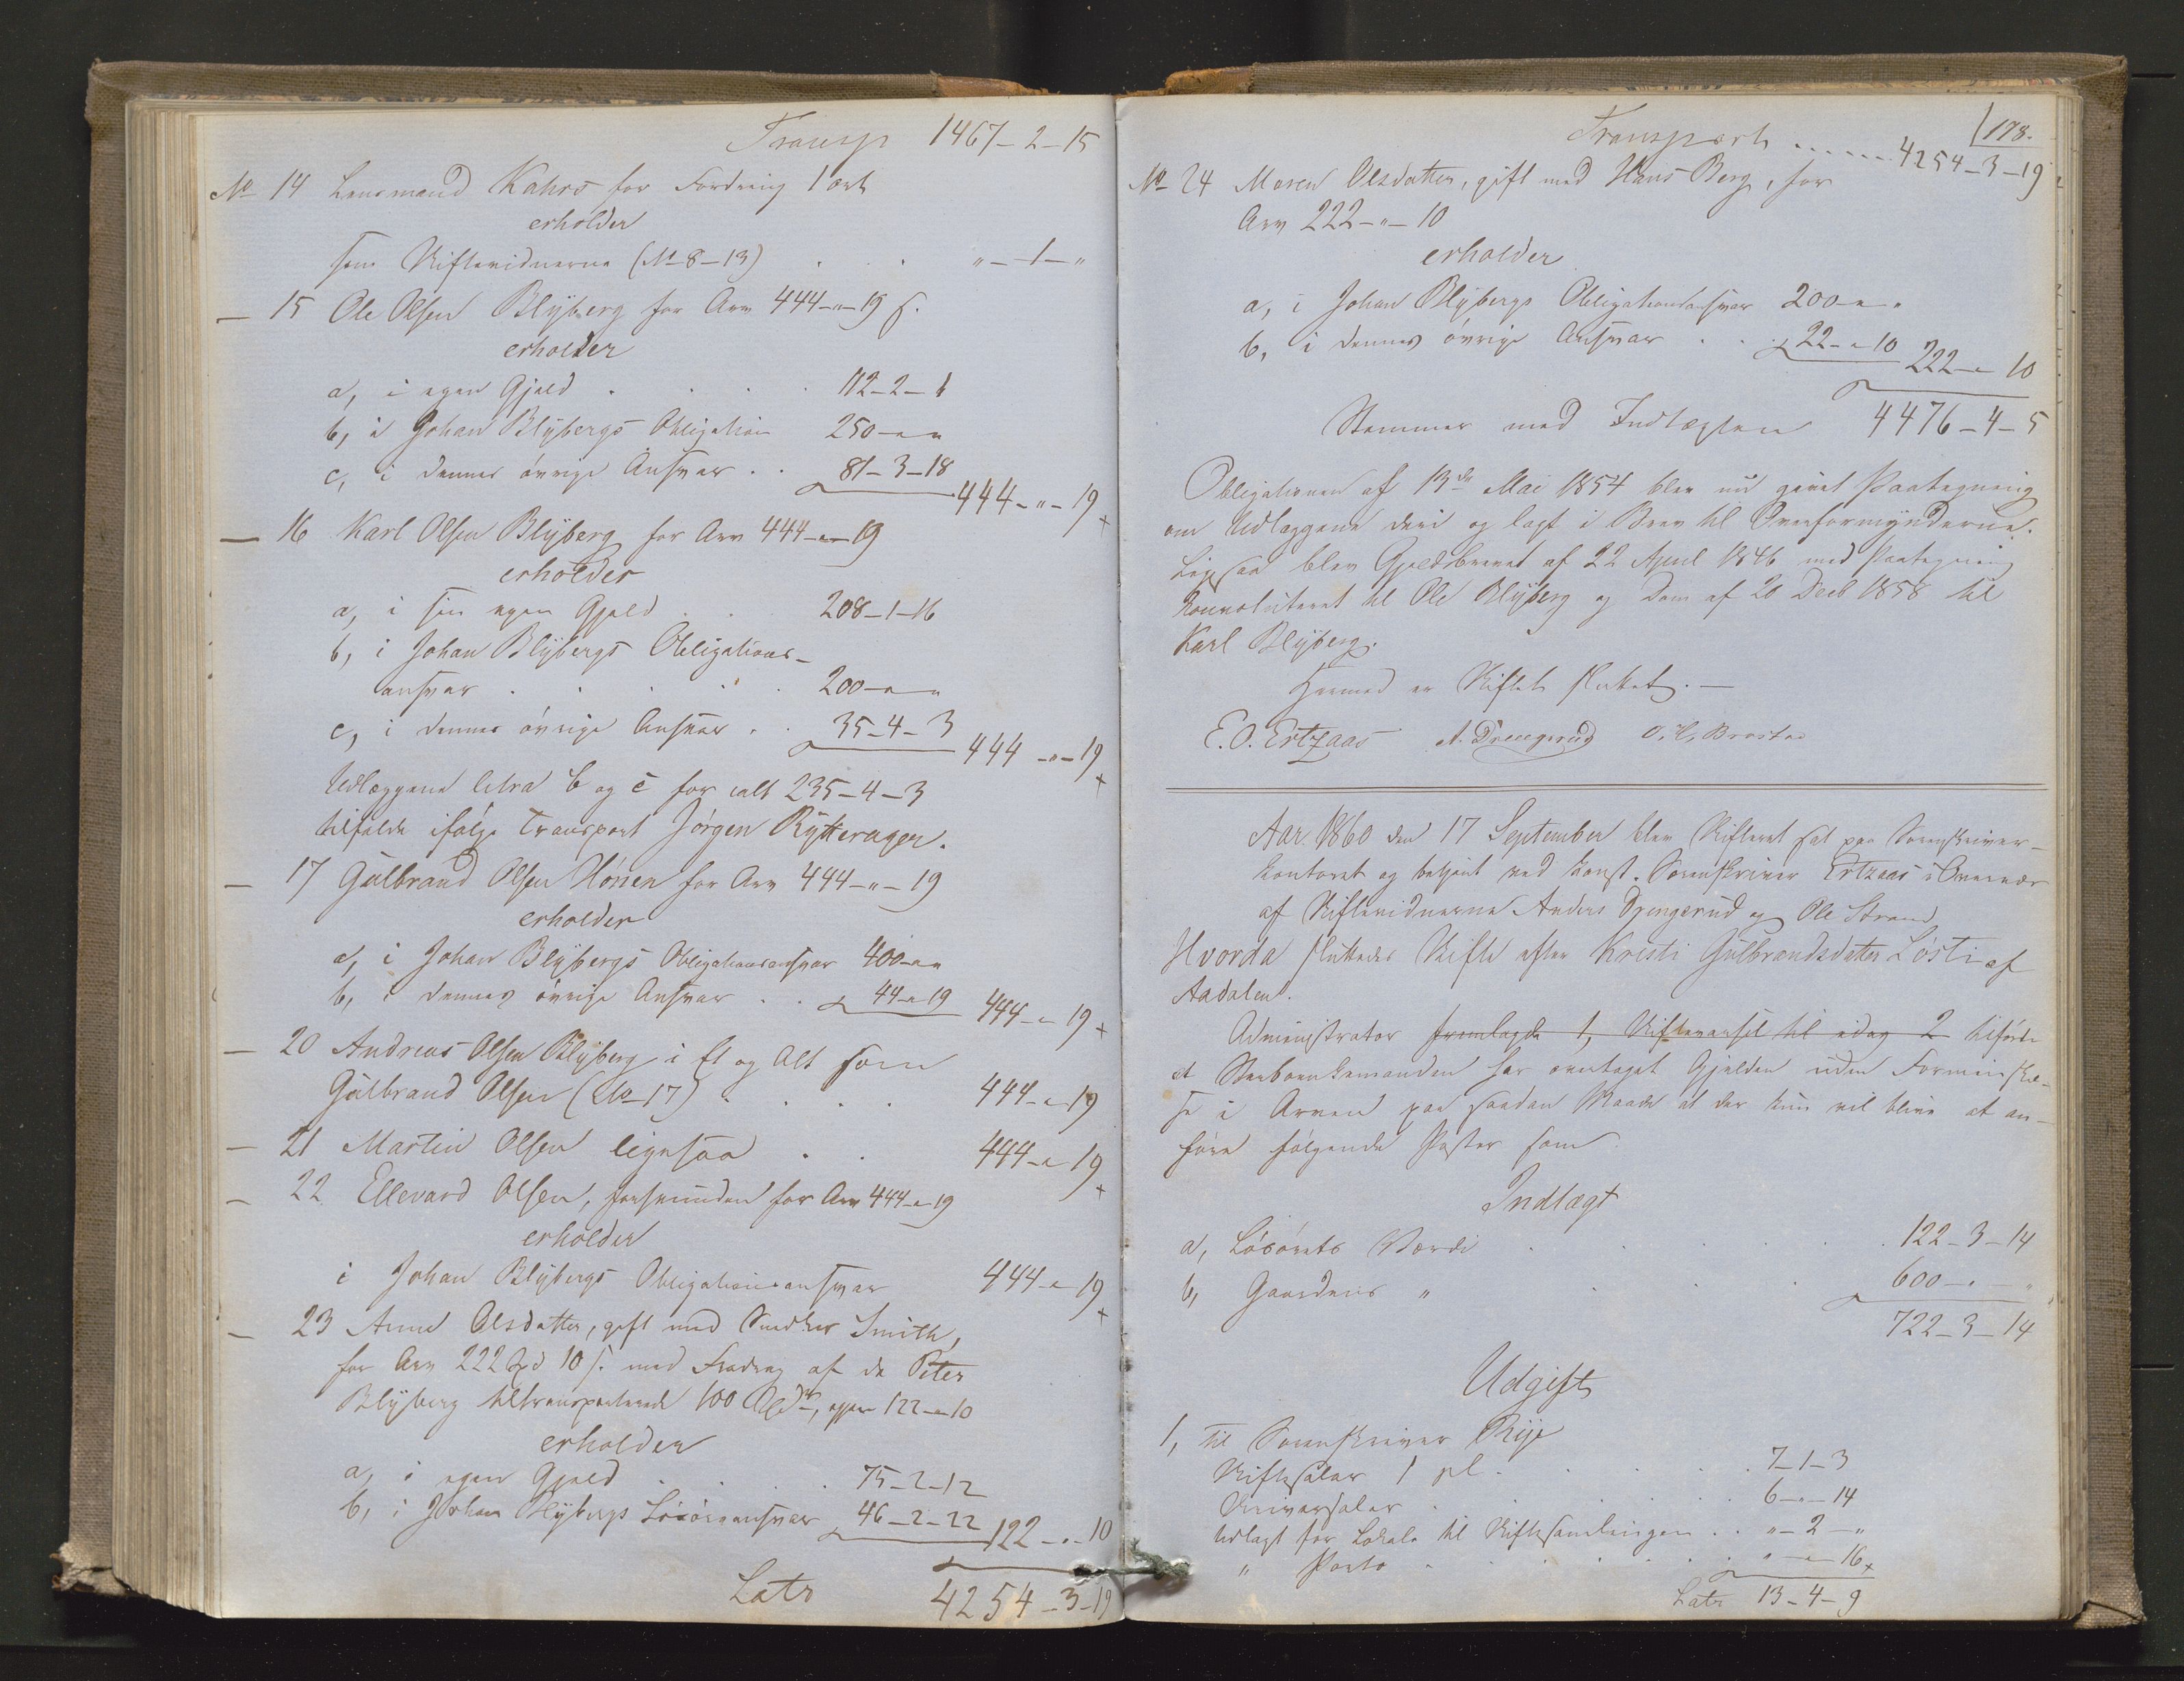 Transp 1467-2-15
No 14 Lensmand Kahrs for Fordring 1 ort
erholder
som Skiftevidnerne (No 8-13) . . . "-1-"
— 15 Ole Olsen Blÿberg for Arv 444-"-19 s.
erholder
a, i egen Gjæld . . . . 112-2-1
b, i Johan Blÿbergs Obligation 250-"-"
c, i dennes øvrige Ansvar . . 81-3-18
444-"-19
— 16 Karl Olsen Blÿberg for Arv 444-"-19
erholder
a, i sin egen Gjæld . . 208-1-16
b, i Johan Blÿbergs Obligations-
ansvar . . . . . 200-"-"
c, i dennes øvrige Ansvar . . 35-4-3
444-"-19
Udlæggene litra b og c for ialt 235-4-3
tilfalde ifølge Transport Jørgen Rÿtterager.
— 17 Gulbrand Olsen Hønen for Arv 444-"-19
erholder
a, i Johan Blÿbergs Obligationsansvar 400-"-"
b, i dennes øvrige Ansvar . . 44-"-19 444-"-19
— 20 Andreas Olsen Blÿberg i Et og Alt som
Gulbrand Olsen (No 17) . . . . 444-"-19
— 21 Martin Olsen ligesaa . . 444-"-19
— 22 Ellevard Olsen, forsvunden for Arv 444-"-19
erholder
i Johan Blÿbergs Obligationsansvar 444-"-19
— 23 Anne Olsdatter, gift med Snedker Smith,
for Arv 222 Spd 10 s. med Fradrag af de Peter
Blÿberg tiltransporterede 100 Spdr, 122-"-10
erholder
a, i egen Gjæld . . . . 75-2-12
b, i Johan Blÿbergs Løsøreansvar 46-2-22 122-"-10
Latr 4254-3-19
178.
Transport ...... 4254-3-19
No 24 Maren Olsdatter, gift med Hans Berg, for
Arv 222-"-10
erholder
a, i Johan Blÿbergs Obligationsansvar 200-"-"
b, i dennes øvrige Ansvar . . . 22-"-10 222-"-10
Stemmer med Indtægten 4476-4-5
Obligationen af 13de Mai 1854 blev nu givet Paategning
om Udlæggene deri og lagt i Brev til Overformynderne.
Ligesaa blev Gjeldsbrevet af 22 April 1846 med Paategning
konvoluteret til Ole Blÿberg og Dom af 20 Decb 1858 til
Karl Blÿberg.
Hermed er Skiftet sluttet. —
E. O. Ertzaas A. Drengerud O. H. Braaten
Aar 1860 den 17 September blev Skifteret sat paa Sorenskriver-
kontoret og betjent ved konst. Sorenskriver Ertzaas i Overvær
af Skiftevidnerne Anders Drengerud og Ole Strand,
Hvorda sluttedes Skifte efter Kristi Gulbrandsdatter Løsti af
Aadalen.
Administrator fremlagde 1, til idag 2 tilførte
at Stervboenkemanden har overtaget Gjælden uden Forminskel-
se i Arven paa saadan Maade at der kun vil blive at an-
føre følgende Poster som
Indtægt
a, Løsørets Værdi . . . . . . 122-3-14
b, Gaardens " . . 600-"-"
722-3-14
Udgift
1, til Sorenskriver Rÿe
Skiftesalær 1 pCt . . . . . 7-1-3
Skriversalær . . . . . . 6-"-14
Udlagt for Lokale til Skiftesamlingen . . "-2-"
" Porto . . . . . . "-"-16
Latr 13-4-9